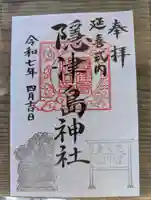 奉拝
延喜式内
隠津島神社
令和七年 四月吉日